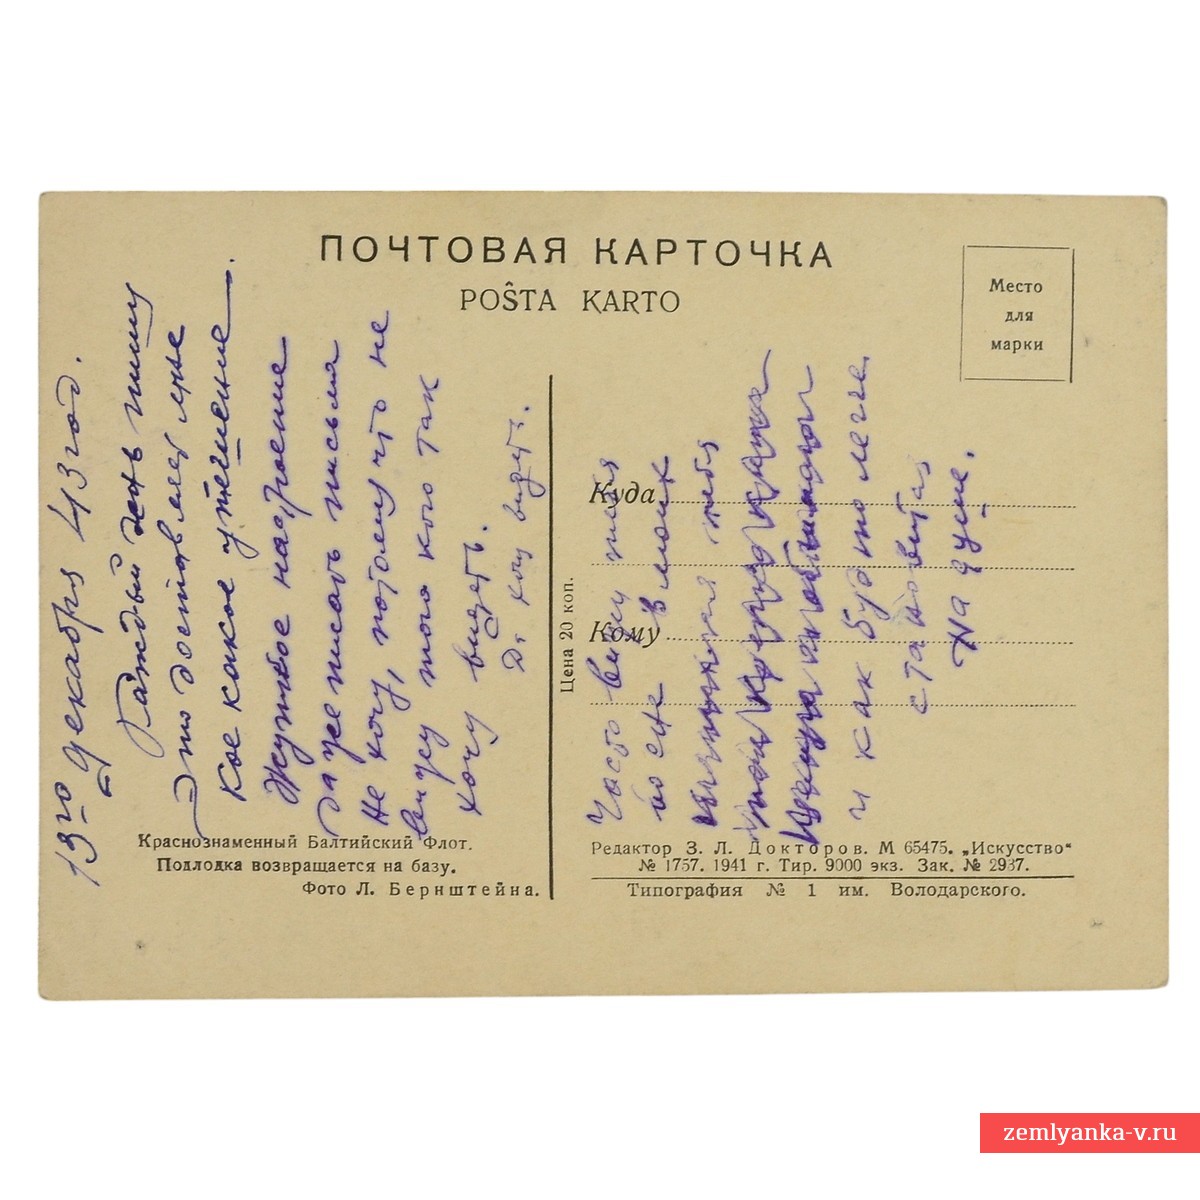 ПОЧТОВАЯ КАРТОЧКА
POŜTA KARTO
Место
для
марки
13го декабря 43 год.
Каждый день пишу
это доставляет мне
кое какое утешение.
Жуткое настроение
даже писать письма
не хочу, потому что не
вижу того кого так
хочу видеть.
Да хочу видеть.
Часто вижу тебя
во сне в моих
тебя
и как будто легче
становится
на душе.
Куда
Кому
Цена 20 коп.
Краснознаменный Балтийский Флот.
Подлодка возвращается на базу.
Фото Л. Бернштейна.
Редактор З. Л. Докторов. М 65475. „Искусство“
№ 1757. 1941 г. Тир. 9000 экз. Зак. № 2937.
Типография № 1 им. Володарского.
zemlyanka-v.ru